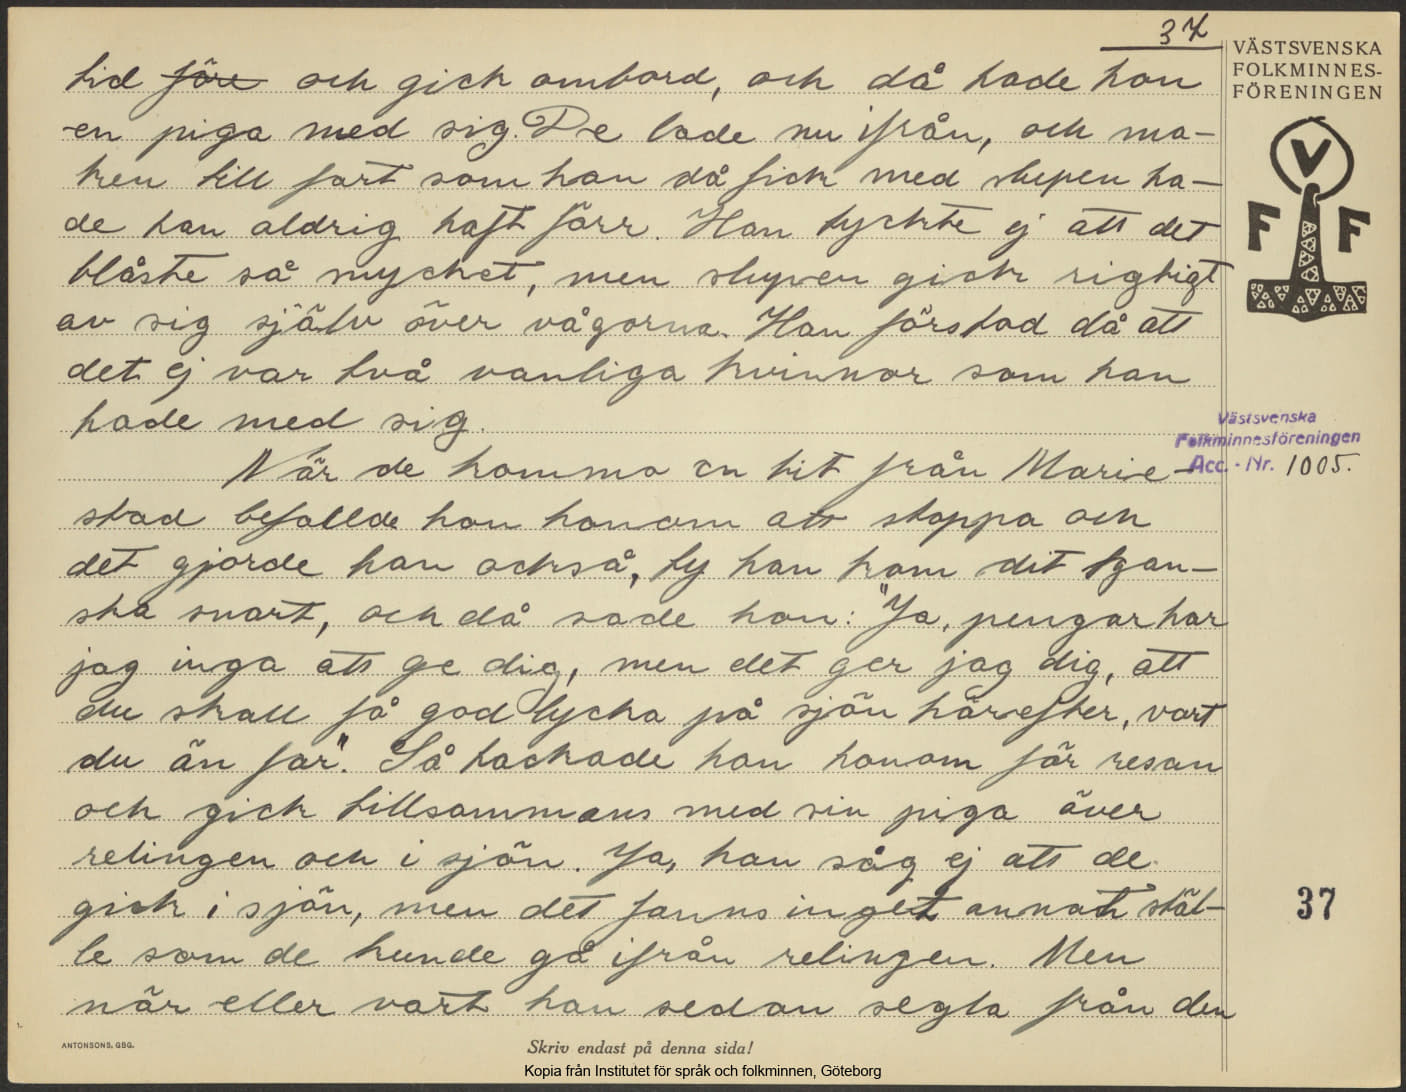 37
VÄSTSVENSKA
FOLKMINNES-
FÖRENINGEN
V
F F
tid före och gick ombord, och då hade hon
en piga med sig. De lade nu ifrån, och ma-
ken till fart som han då fick med slupen ha-
de han aldrig haft förr. Han tyckte ej att det
blåste så mycket, men slupen gick rigtigt
av sig själv över vågorna. Han förstod då att
det ej var två vanliga kvinnor som han
hade med sig.
När de kommo en bit från Marie-
stad befallde hon honom att stoppa och
det gjorde han också, ty han kom dit gan-
ska snart, och då sade hon: "Ja, pengar har
jag inga att ge dig, men det ger jag dig, att
du skall få god lycka på sjön härefter, vart
du än far". Så tackade hon honom för resan
och gick tillsammans med sin piga över
relingen och i sjön. Ja, han såg ej att de
gick i sjön, men det fanns inget annat stäl-
le som de kunde gå ifrån relingen. Men
när eller vart han sedan segla från den
Västsvenska
Folkminnesföreningen
Acc.-Nr. 1005.
37
ANTONSONS, GBG.
Skriv endast på denna sida!
Kopia från Institutet för språk och folkminnen, Göteborg